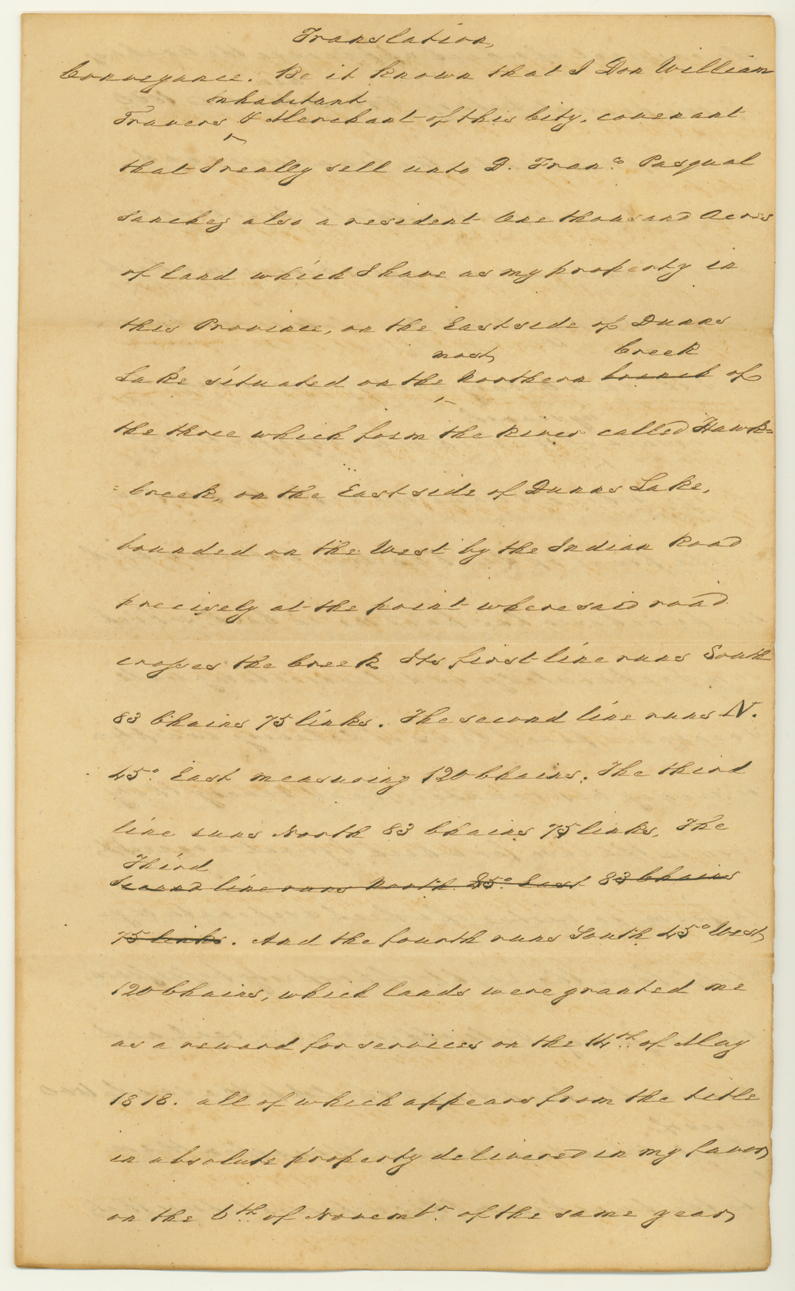 Translation,
Conveyance. Be it known that I Don William
inhabitant
Travers & Merchant of this City, covenant
that I really sell unto D. Franco. Pasqual
Sanchez also a resident One thousand Acres
of land which I have as my property in
this Province, on the East side of Dunns
most Creek
Lake situated on the Northern branch of
the three which form the River called Hawk=
=creek, on the East side of Dunns Lake,
bounded on the West by the Indian Road
precisely at the point where said road
crosses the Creek Its first line runs South
83 Chains 75 links. The second line runs N.
45° East measuring 120 Chains. The third
line runs North 83 Chains 75 links. The
Third
Second line runs North 45° East 83 Chains
75 links. And the fourth runs South 45° West,
120 Chains, which lands were granted me
as a reward for services on the 14th of May
1818. all of which appears from the title
in absolute property delivered in my favor,
on the 6th of Novembr. of the same year,